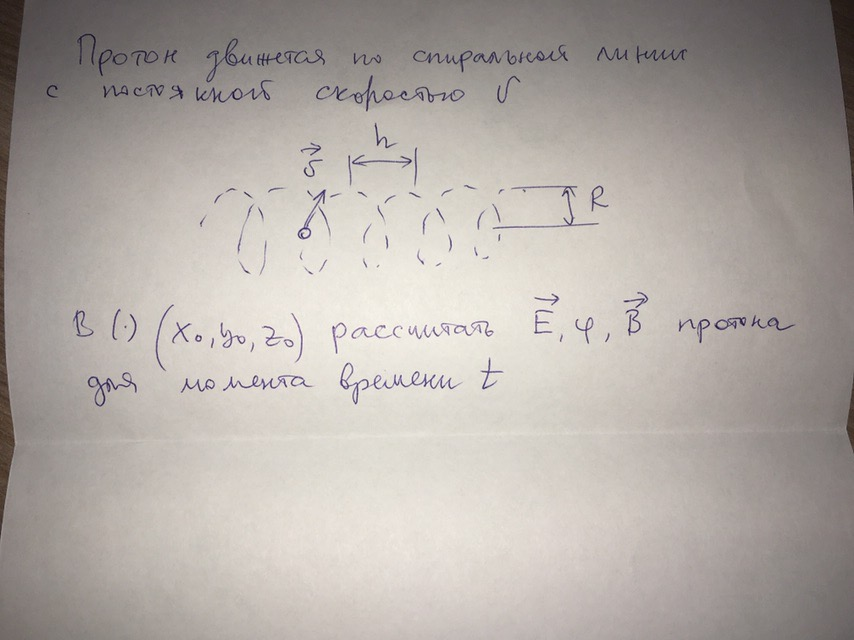 Протон движется по спиральной линии
с постоянной скоростью υ
h
υ⃗
R
В (·) (x₀, y₀, z₀) рассчитать E⃗, φ, B⃗ протона
для момента времени t